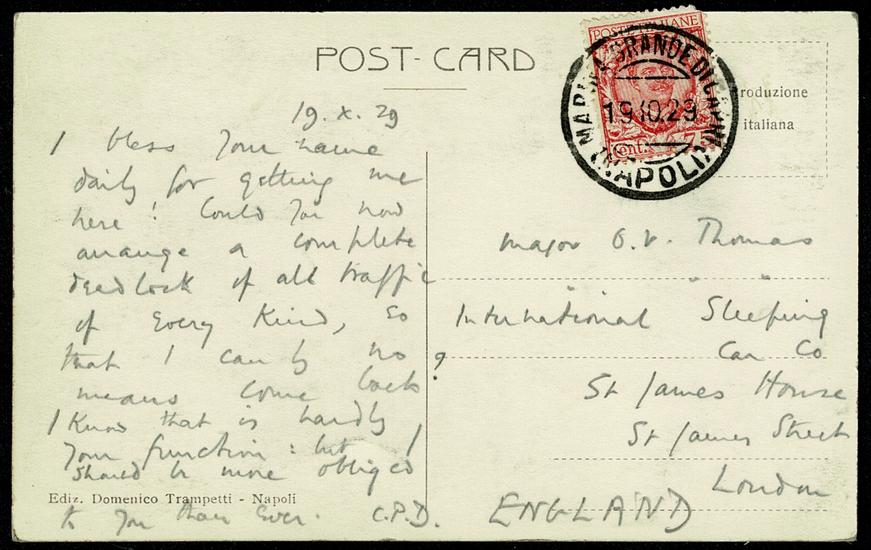 POST-CARD
POSTE ITALIANE
Cent.
MARINA GRANDE DI CAPRI
19.10.29
(NAPOLI)
roduzione
italiana
19. X. 29
I bless your name
daily for getting me
here! Could you now
arrange a complete
deadlock of all traffic
of every kind, so
that I can by no
means come back ?
I know that is hardly
your function: but I
should be more obliged
Ediz. Domenico Trampetti - Napoli
to you than ever. C.P.D.
Major O.V. Thomas
International Sleeping
Car Co
St James House
St James Street
London
ENGLAND